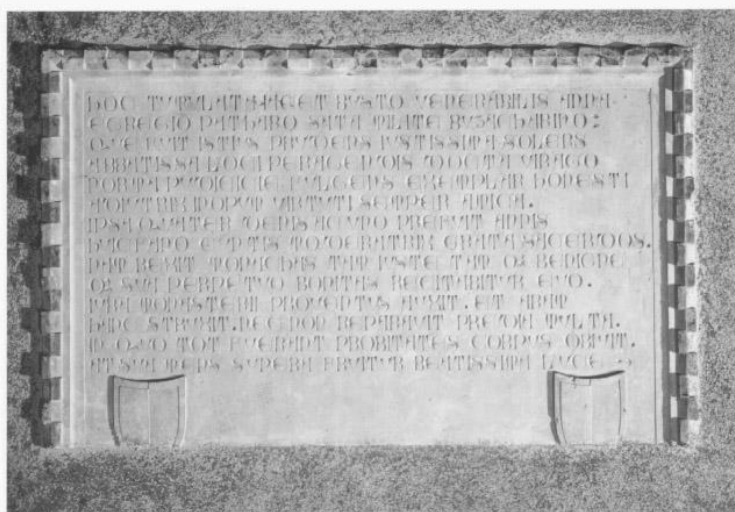 HOC TUMULATA IACET BUSTO VENERABILIS ANNA
EGREGIO PATAVARO SATA MILITE BUZACHARINO:
QUE FUIT ISTIUS PRUDENS IUSTISSIMA SOLERS
ABBATISSA LOCI PERAGENDIS DOCTA VIRAGO
NORMA PUDICICIE FULGENS EXEMPLAR HONESTI
INOPUM VIRTUTI SEMPER AMICA.
IPSA QUATER DENIS AC UNO PREFUIT ANNIS
MODERATRIX GRATA SACERDOS.
NAM REXIT MONACHAS TAM IUSTE TAM Q BENIGNE
Q SUI PERPETUO BONITAS RECITABITUR EVO.
IURA MONASTERII PROVENTUS AUXIT. ET ARAM
HANC STRUXIT. NEC NON REPARAVIT PREDIA MULTA.
IN QUO TOT FUERANT PROBITATES CORPUS OBIVIT.
AT SUA MENS SUPERA FRUITUR BEATISSIMA LUCE